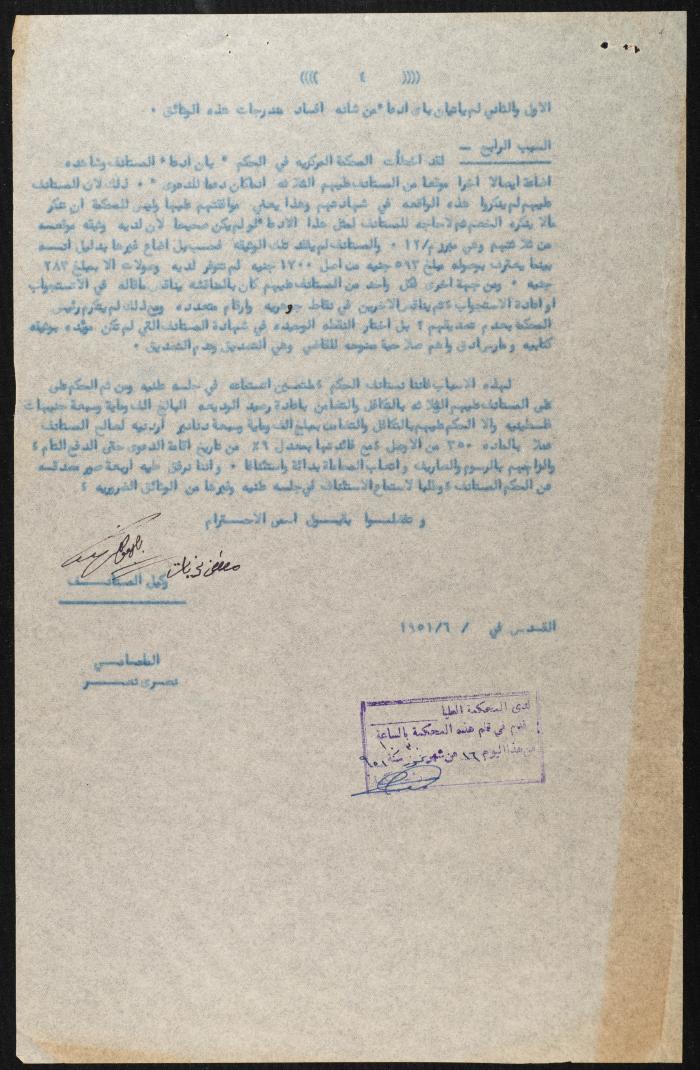 (((( ٤ ))))
الاول والثاني لم ياتيان باي ادعاء من شانه افساد مندرجات هذه الوثائق .
السبب الرابع — لقد اخطأت المحكمة المركزيه في الحكم " بان ادعاء المستانف وشاهده
اضاعة ايصالا اخرا موقعا من المستانف عليهم الثلاثه انما كان دعما للدعوى " . ذلك لان المستانف
عليهم لم ينكروا هذه الواقعه في شهادتهم وهذا يعني موافقتهم عليها وليس للمحكمة ان تنكر
مالا ينكره الخصم ثم لاحاجه للمستانف لمثل هذا الادعاء لو لم يكن صحيحا لان لديه وثيقه موقعه
من ثلاثتهم وهي مبرز م/١٢ . والمستانف لم يفقد تلك الوثيقه فحسب بل اضاع غيرها بدليل انه
بينما يعترف بوصوله مبلغ ٥٩٣ جنيه من اصل ١٧٠٠ جنيه لم تتوفر لديه وصولات الا بمبلغ ٢٨٣
جنيه . ومن جهة اخرى فكل واحد من المستانف عليهم كان بالمناقشه يناقض ماقاله في الاستجواب
او اعادة الاستجواب ثم يناقض الاخرين في نقاط جوهريه وارقام متعدده ومع ذلك لم يكرم رئيس
المحكمة بعدم تصديقهم ؟ بل اختار النقطه الوحيده في شهادة المستانف التي لم تكن مؤيده بوثيقه
كتابيه ومارس ادق واهم صلاحية ممنوحه للقاضي وهي التصديق وعدم التصديق .
لهذه الاسباب فاننا نستانف الحكم ملتمسين استماعه في جلسه علنيه ومن ثم الحكم على
على المستانف عليهم الثلاثه بالتكافل والتضامن باعادة رصيد الوديعه البالغ الف وماية وسبعة جنيهات
فلسطينيه والا الحكم عليهم بالتكافل والتضامن بمبلغ الف وماية وسبعة دنانير أردنيه لصالح المستانف
عملا بالماده ٣٥٠ من الاصول مع فائدتها بمعدل ٩٪ من تاريخ اقامة الدعوى حتى الدفع التام
والزامهم بالرسوم والمصاريف واتعاب المحاماة بداية واستئنافا . واننا نرفق طيه اربعة صور مصدقه
عن الحكم المستانف وطلبا لاستماع الاستئناف في جلسه علنيه وغيرها من الوثائق الضروريه
وتفضلوا بقبول اسمى الاحترام
وكيل المستانف
القدس في / ١٩٥١/٦
المحامي
نصري نصر
لدى المحكمة العليا
قدم في قلم هذه المحكمة بالساعة
من هذا اليوم ١٦ من شهر تموز سنة ٩٥١